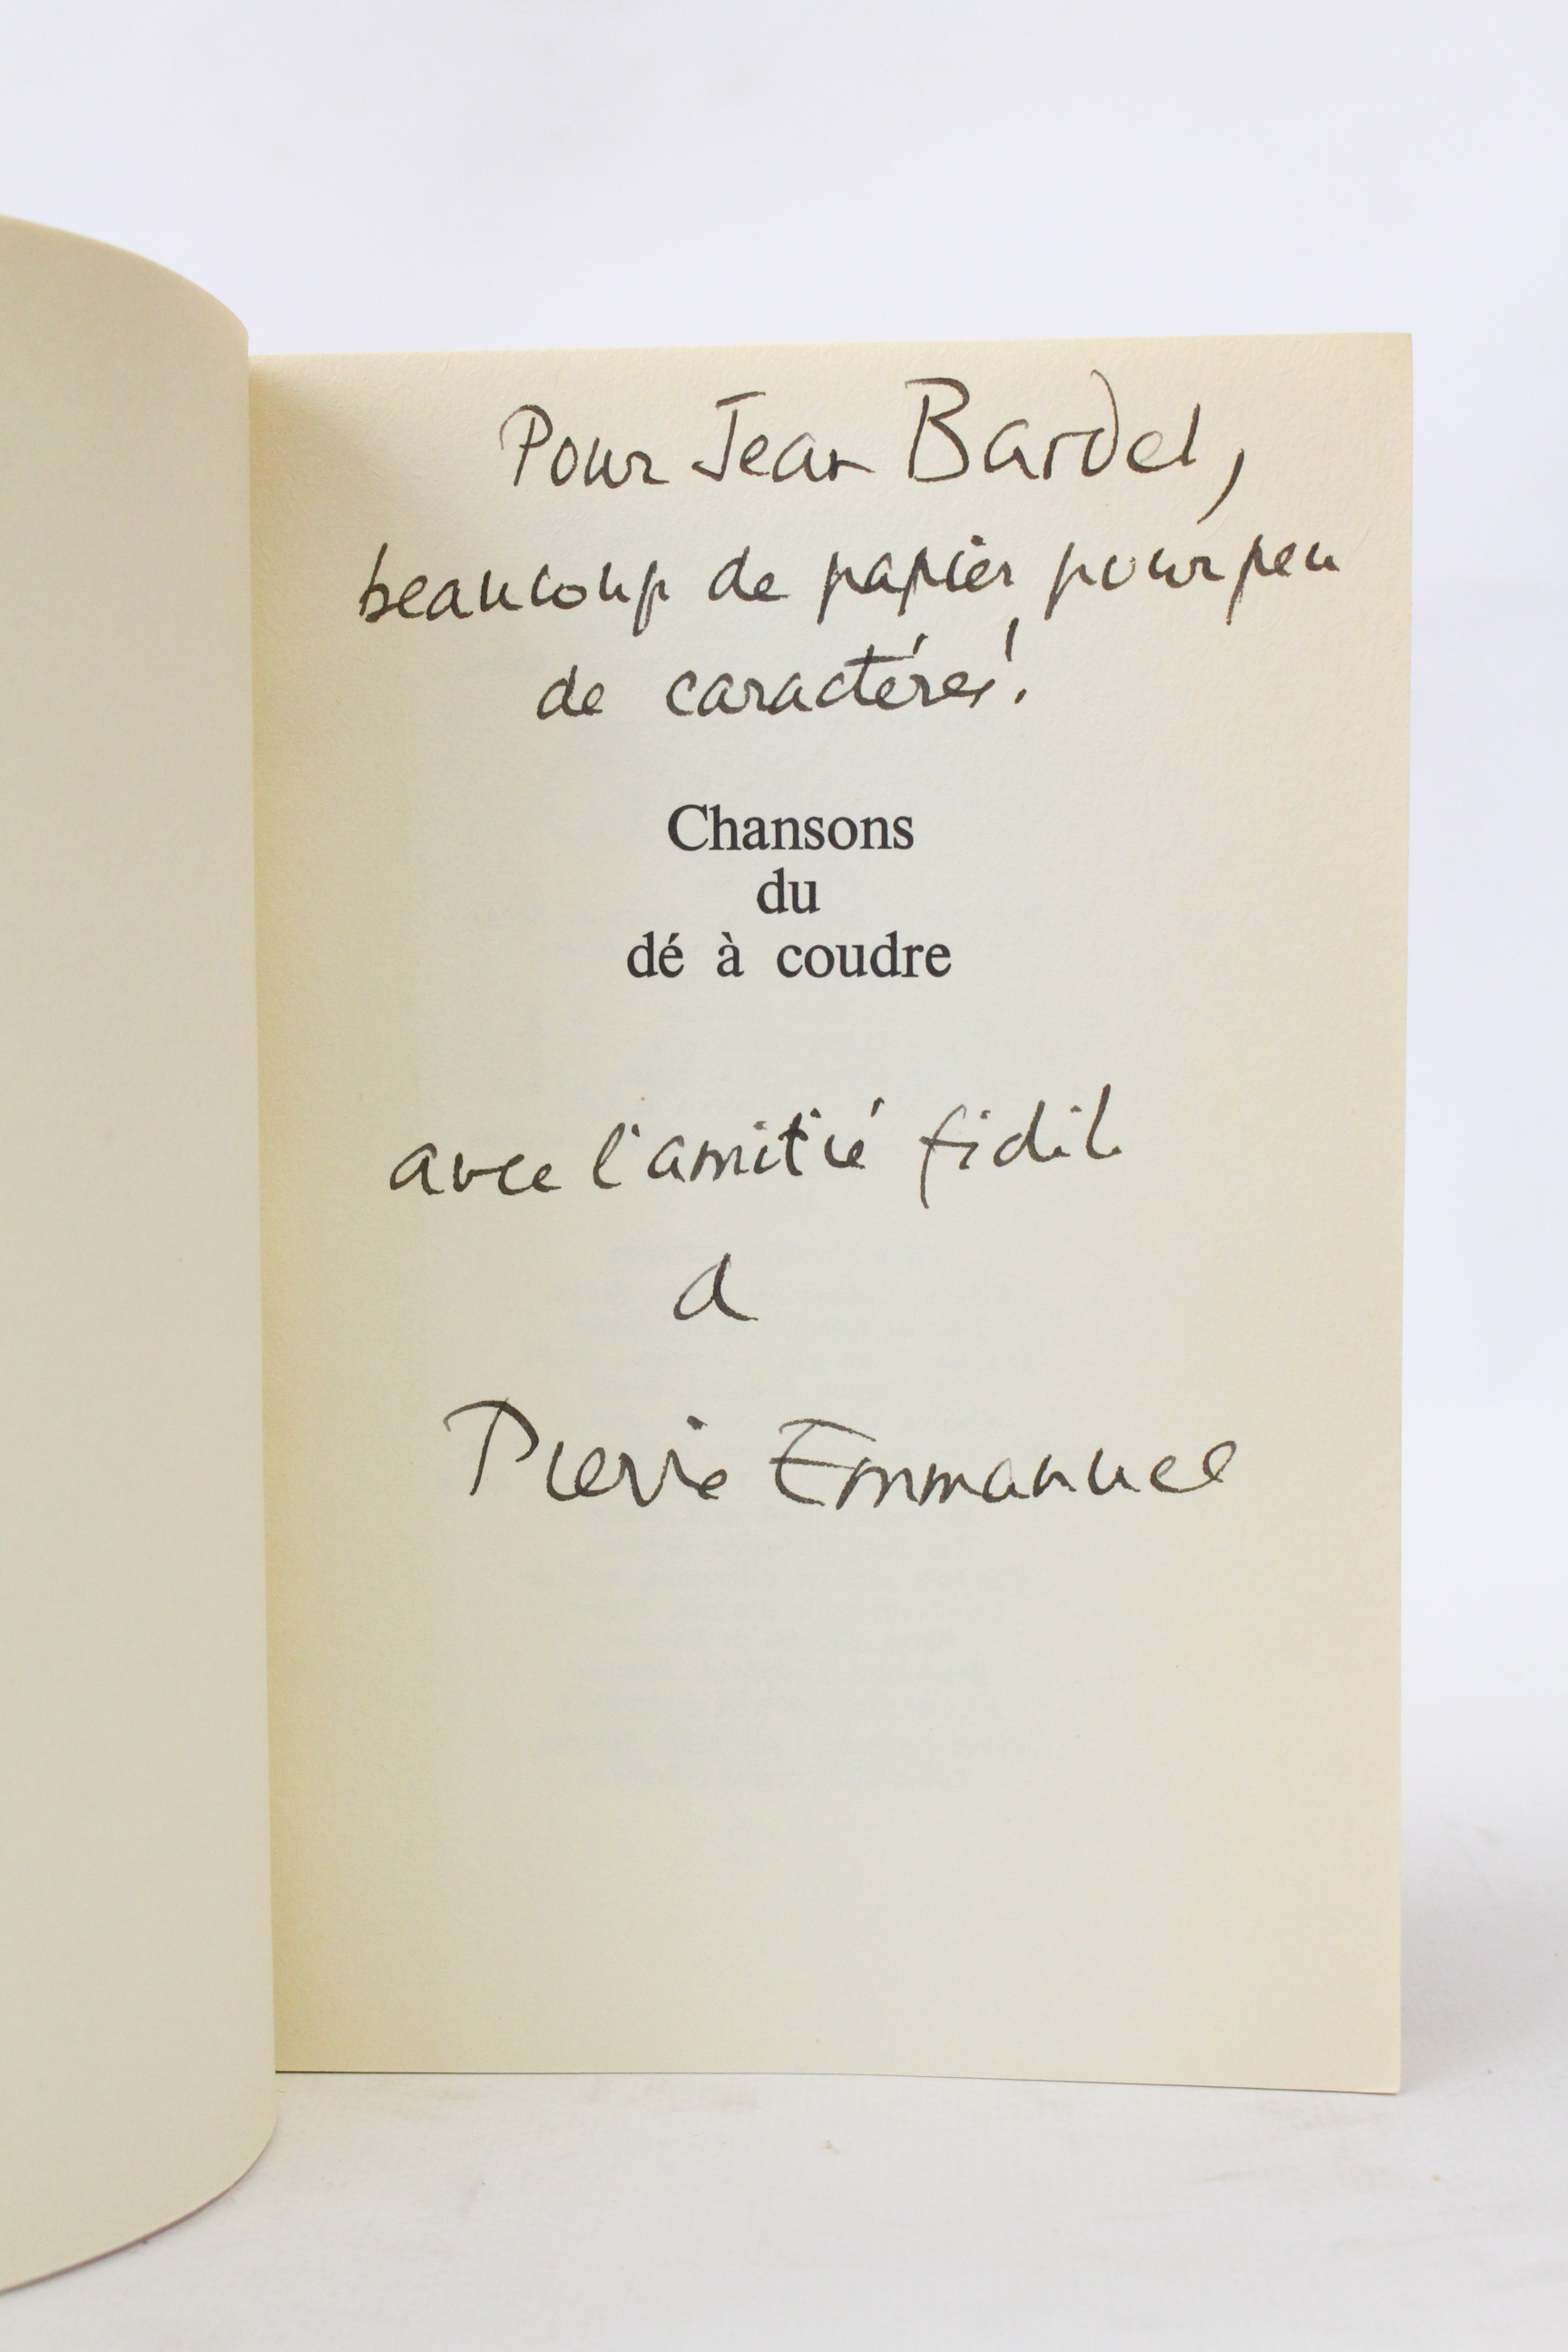 Pour Jean Bardel,
beaucoup de papier pour peu
de caractères!
Chansons
du
dé à coudre
avec l'amitié fidèle
d
Pierre Emmanuel